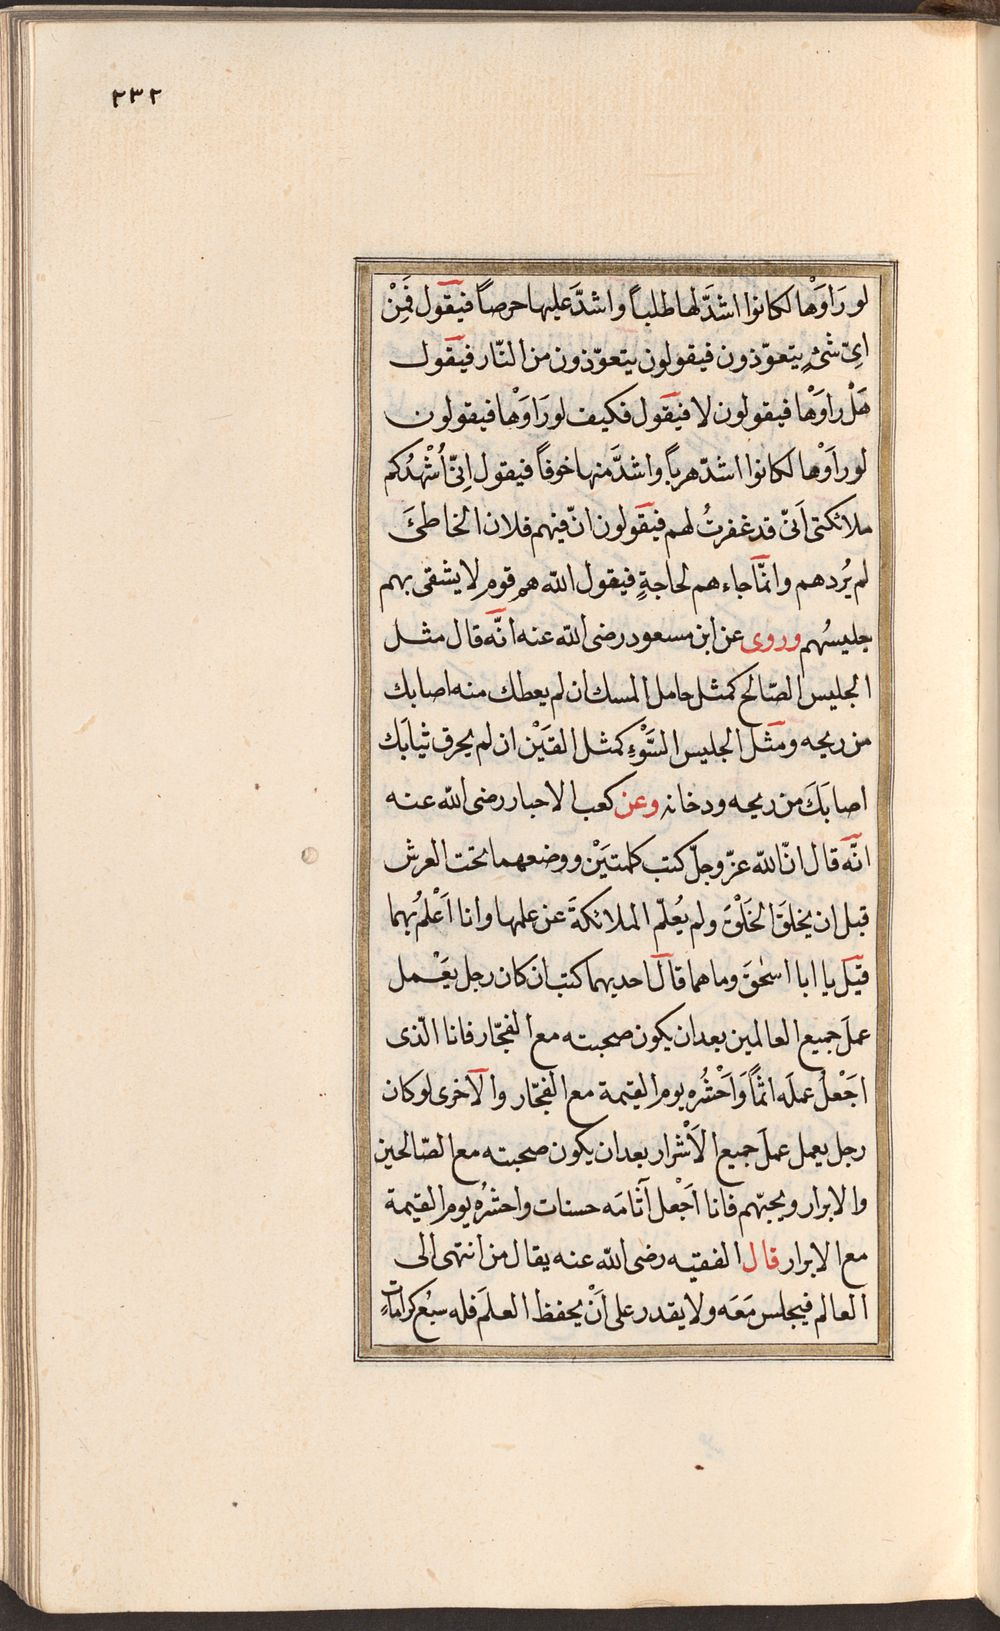 ٢٣٢
لو رَاَوَهْا لكانوا اشدَّ لها طلباً واشدَّ عليها حرصاً فيقول فَمِنْ
اىّ شئٍ يتعوّذون فيقولون يتعوّذون من النّار فيقول
هَلْ راَوَهْا فيقولون لا فيقول فكيف لو رَاوَهْا فيقولون
لو راَوَهْا لكانوا اشدّ هرباً واشدَّ منها خوفاً فيقول اِنّى اُشْهِدُكم
ملائكتى اَنّى قد غفرتُ لهم فيقولون انّ فيهم فلان الخاطئَ
لم يُردهم وانّما جاءهم لحاجةٍ فيقول الله هم قوم لا يشقى بهم
جليسُهم وروى عن ابن مسعود رضى الله عنه انّه قال مثل
الجليس الصّالح كمثل حامل المسك ان لم يعطك منه اصابك
من ريحه ومثل الجليس السَّوْءِ كمثل القَيْن ان لم يحرق ثيابَك
اصابَكَ من ريحه ودخانه وعن كعب الاحبار رضى الله عنه
انّه قال انّ الله عزّ وجلّ كتب كلمتَيْن ووضعهما تحت العرش
قبل ان يخلقَ الخَلْقَ ولم يُعلّم الملائكةَ عن علمها وانا اَعْلَمُ بهما
قيل يا ابا اسحٰق وما هما قال احديهما كتب ان كان رجل يَعْمل
عملَ جميع العالمين بعد ان يكون صحبته مع الفجّار فانا الّذى
اجَعْلُ عملَه اثماً وَاَحْشُره يوم القيمة مع الفجّار والاَخرى لو كان
رجل يعمل عملَ جميع الاَشْرار بعد ان يكون صحبته مع الصّالحين
والابرار ويحبّهم فانا اَجْعل آثامَه حسنات واحشُرُه يوم القيمة
مع الابرار قال الفقيه رضى الله عنه يقال من انتهى الى
العالم فيجلس مَعَه ولا يقدر على اَنْ يحفظ العلمَ فله سبُع كراماتٍ